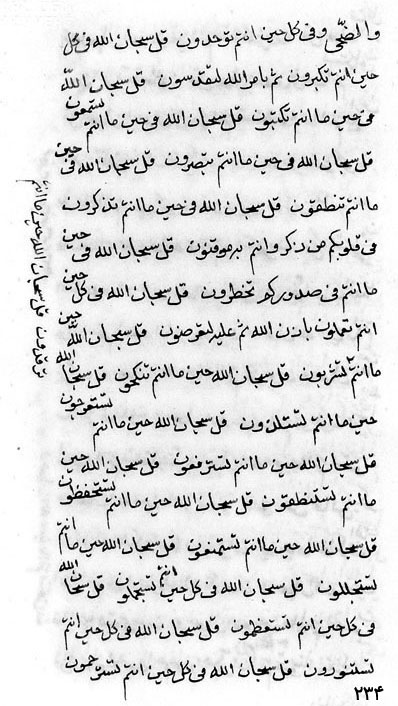 والضحى وفى كل حين انتم توحدون قل سبحان الله فى كل
حين انتم تكبرون ثم بامر الله لتقدسون قل سبحان الله
فى حين ما انتم تكتبون قل سبحان الله فى حين ما انتم تسمعون
قل سبحان الله فى حين ما انتم تبصرون قل سبحان الله فى حين
ما انتم تنطقون قل سبحان الله فى حين ما انتم تذكرون
فى قلوبكم من ذكر وانتم به موقنون قل سبحان الله فى حين
ما انتم فى صدوركم تخطرون قل سبحان الله فى كل حين
انتم تعملون باذن الله ثم عليه لتعرضون قل سبحان الله حين
ما انتم لتشربون قل سبحان الله حين ما انتم تنكحون قل سبحان الله
حين ما انتم تستلذون قل سبحان الله حين ما انتم تستعرجون
قل سبحان الله حين ما انتم تسترفعون قل سبحان الله حين
ما انتم تستنطقون قل سبحان الله حين ما انتم تستحفظون
قل سبحان الله حين ما انتم تستمنعون قل سبحان الله حين ما انتم
تستجللون قل سبحان الله فى كل حين انتم تستجملون قل سبحان الله
فى كل حين انتم تستعظمون قل سبحان الله فى كل حين انتم
تستنورون قل سبحان الله فى كل حين انتم تسترحمون
ترقدون قل سبحان الله حين ما انتم
٢٣۴